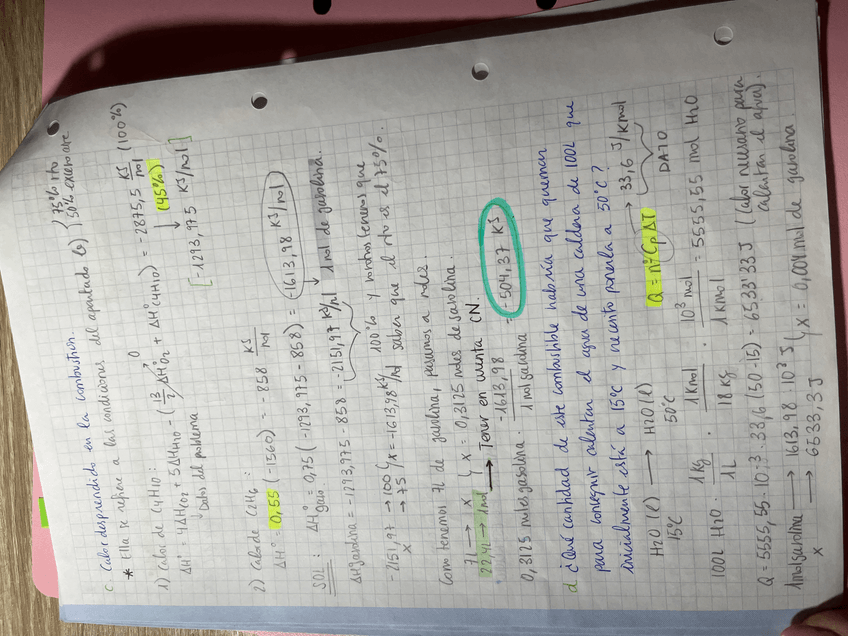 c. Calor desprendido en la combustión.
* Ella se refiere a las condiciones del apartado (a) { 75% rto
50% exceso aire
1) Calor de C4H10:
ΔH° = 4ΔH°CO2 + 5ΔH°H2O - (13/2 ΔH°O2 + ΔH°C4H10) = -2875,5 KJ/mol (100%)
0
↓ Datos del problema
(45%)
↓
[-1293,975 KJ/mol]
2) Calor de C2H6:
ΔH° = 0,55 (-1560) = -858 KJ/mol
SOL: ΔH°gaso = 0,75 (-1293,975 - 858) = -1613,98 KJ/mol
↓ 1 mol de gasolina.
ΔHgasolina = -1293,975 - 858 = -2151,97 KJ/mol
100% y nosotros tenemos que
saber que el rto es el 75%.
-2151,97 → 100 }
x → 75 } x = -1613,98 KJ/mol
Como tenemos 7L de gasolina, pasamos a moles.
7L → x }
22,4L → 1mol } x = 0,3125 moles de gasolina.
→ Tener en cuenta CN.
0,3125 moles gasolina · -1613,98 / 1 mol gasolina = -504,37 KJ
d. ¿Qué cantidad de este combustible habría que quemar
para conseguir calentar el agua de una caldera de 100L que
inicialmente está a 15°C y necesito ponerla a 50°C?
H2O (l) → H2O (l)
15°C 50°C
Q = n·Cp ΔT → 33,6 J/Kmol
DATO
100L H2O · 1Kg / 1L · 1Kmol / 18Kg · 10³ mol / 1Kmol = 5555,55 mol H2O
Q = 5555,55 · 10⁻³ · 33,6 (50-15) = 6533'33 J (Calor necesario para
calentar el agua).
1mol gasolina → 1613,98 · 10³ J }
x → 6533,3 J } x = 0,004 mol de gasolina